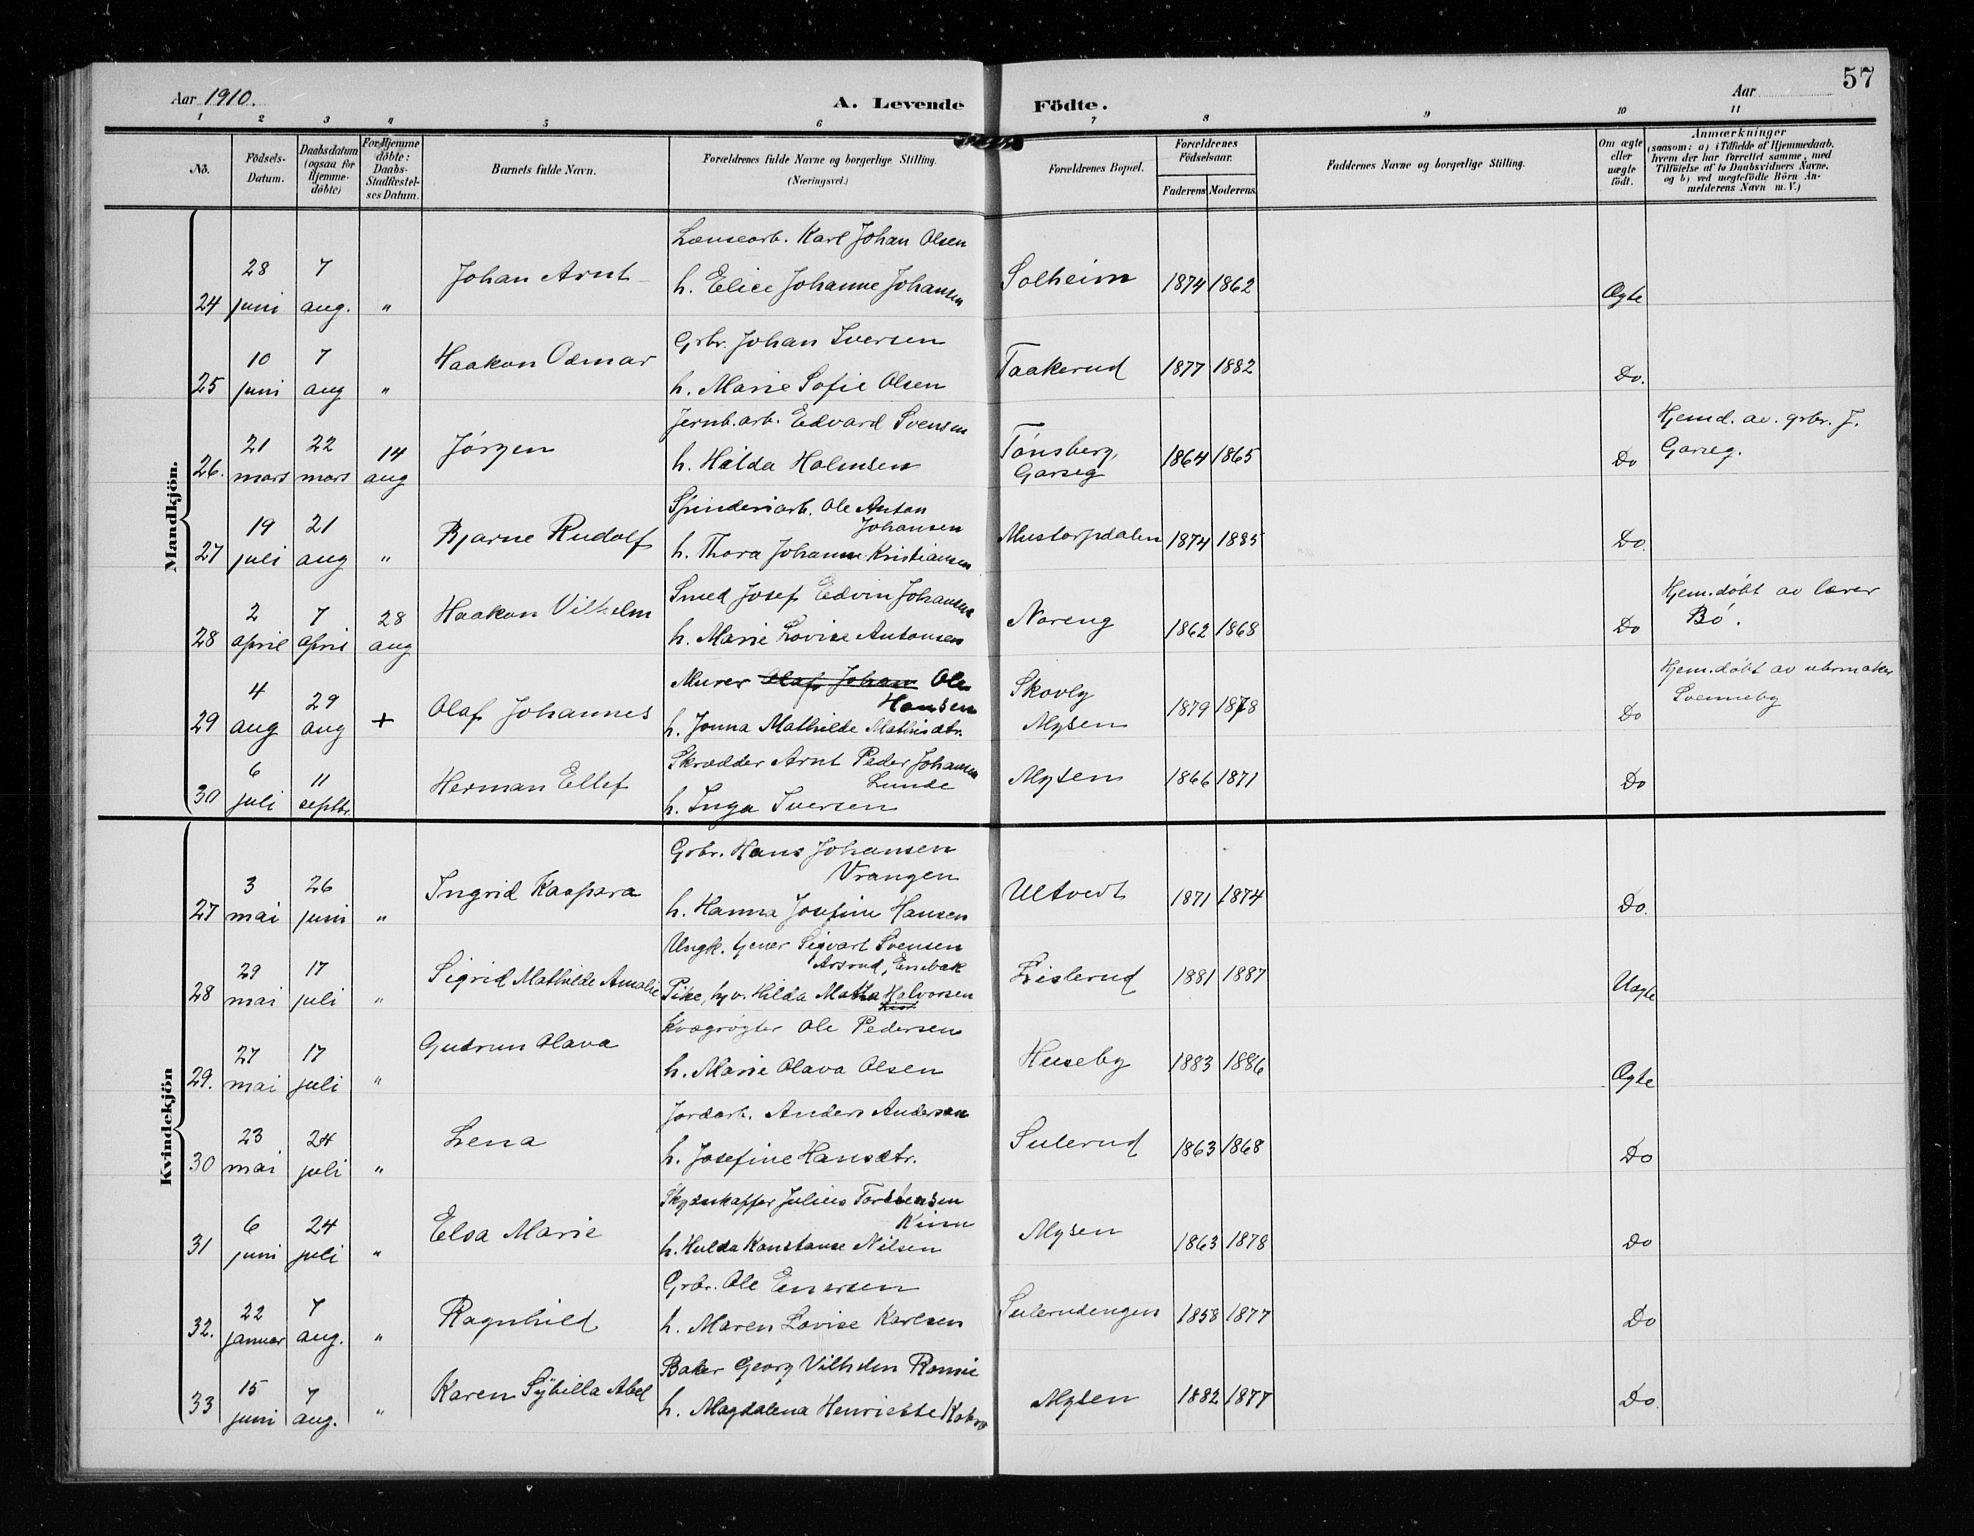 57
Aar 1910. A. Levende Födte. Aar
1 2 3 4 5 6 7 8 9 10 11
No. Födsels-Datum. Daabsdatum (ogsaa for Hjemme-döbte) For Hjemme döbte: Daabs-Stadfæstel-ses Datum. Barnets fulde Navn. Forældrenes fulde Navne og borgerlige Stilling. (Næringsvei.) Forældrenes Bopæl. Forældrenes Födselsaar. Faderens Moderens. Faddernes Navne og borgerlige Stilling. Om ægte eller uægte födt. Anmærkninger (saasom: a) i Tilfælde af Hjemmedaab, hvem der har forrettet samme, med Tilföielse af to Daabsvidners Navne, og b) ved uægtefödte Börn An-melderens Navn m. V.)
Mandkjön.
Lænsearb. Karl Johan Olsen
24 28 juni 7 aug. " Johan Arnt h. Elice Johanne Johansen Solheim 1874 1862 Ægte
Grbr. Johan Iversen
25 10 juni 7 aug " Haakon Odmar h. Marie Sofie Olsen Taakerud 1877 1882 Do.
Jernb.arb. Edvard Svensen
26. 21 mars 22 mars 14 aug Jørgen h. Hilda Halmsen Tønsberg, Garseg 1864 1865 Do Hjemd. av. grbr. J. Garseg.
Spinderiarb. Ole Anton Johansen
27 19 juli 21 aug " Bjarne Rudolf h. Thora Johanne Kristiansen Mustorpdalen 1874 1885 Do.
Smed Josef Edvin Johansen
28 2 april 7 april 28 aug Haakon Vilhelm h. Marie Lovise Antonsen Noreng 1862 1868 Do Hjem.døbt av lærer Bø.
Murer Olaf Johan Ole Hansen
29 4 aug 29 aug + Olaf Johannes h. Jonna Mathilde Mathisdtr. Skovly Mysen 1879 1878 Do Hjem.døbt av urmaker Svenneby
Skrædder Arnt Peder Johansen Lunde
30 6 juli 11 septbr. Herman Ellef h. Inga Iversen Mysen 1866 1871 Do
Kvindekjön
Grbr. Hans Johansen Vrangen
27 3 mai 26 juni " Ingrid Kaspara h. Hanna Josefine Hansen Ultvedt 1871 1874 Do.
Ungk. tjener Sigvart Svensen Enebak
28 29 mai 17 juli " Sigrid Mathilde Amalie Pike, hjv. Hilda Matha Halvorsen Lislerud 1881 1887 Uægte
Kvægrøgter Ole Pedersen
29. 27 mai 17 juli " Gudrun Olava h. Marie Olava Olsen Huseby 1883 1886 Ægte
Jordarb. Anders Andersen
30 23 mai 24 juli " Lena h. Josefine Hansdtr. Sulerud 1863 1868 Do
Skydsskaffer Julius Torstensen Kinn
31 6 juni 24 juli " Elsa Marie h. Hulda Konstanse Nilsen Mysen 1863 1878 Do
Grbr. Ole Enersen
32. 22 januar 7 aug. " Ragnhild h. Maren Lovise Karlsen Sulerudengen 1858 1877 Do
Baker Georg Vilhelm Rønne
33 15 juni 7 aug. " Karen Sybilla Abel h. Magdalena Henriette Mysen 1882 1877 Do.